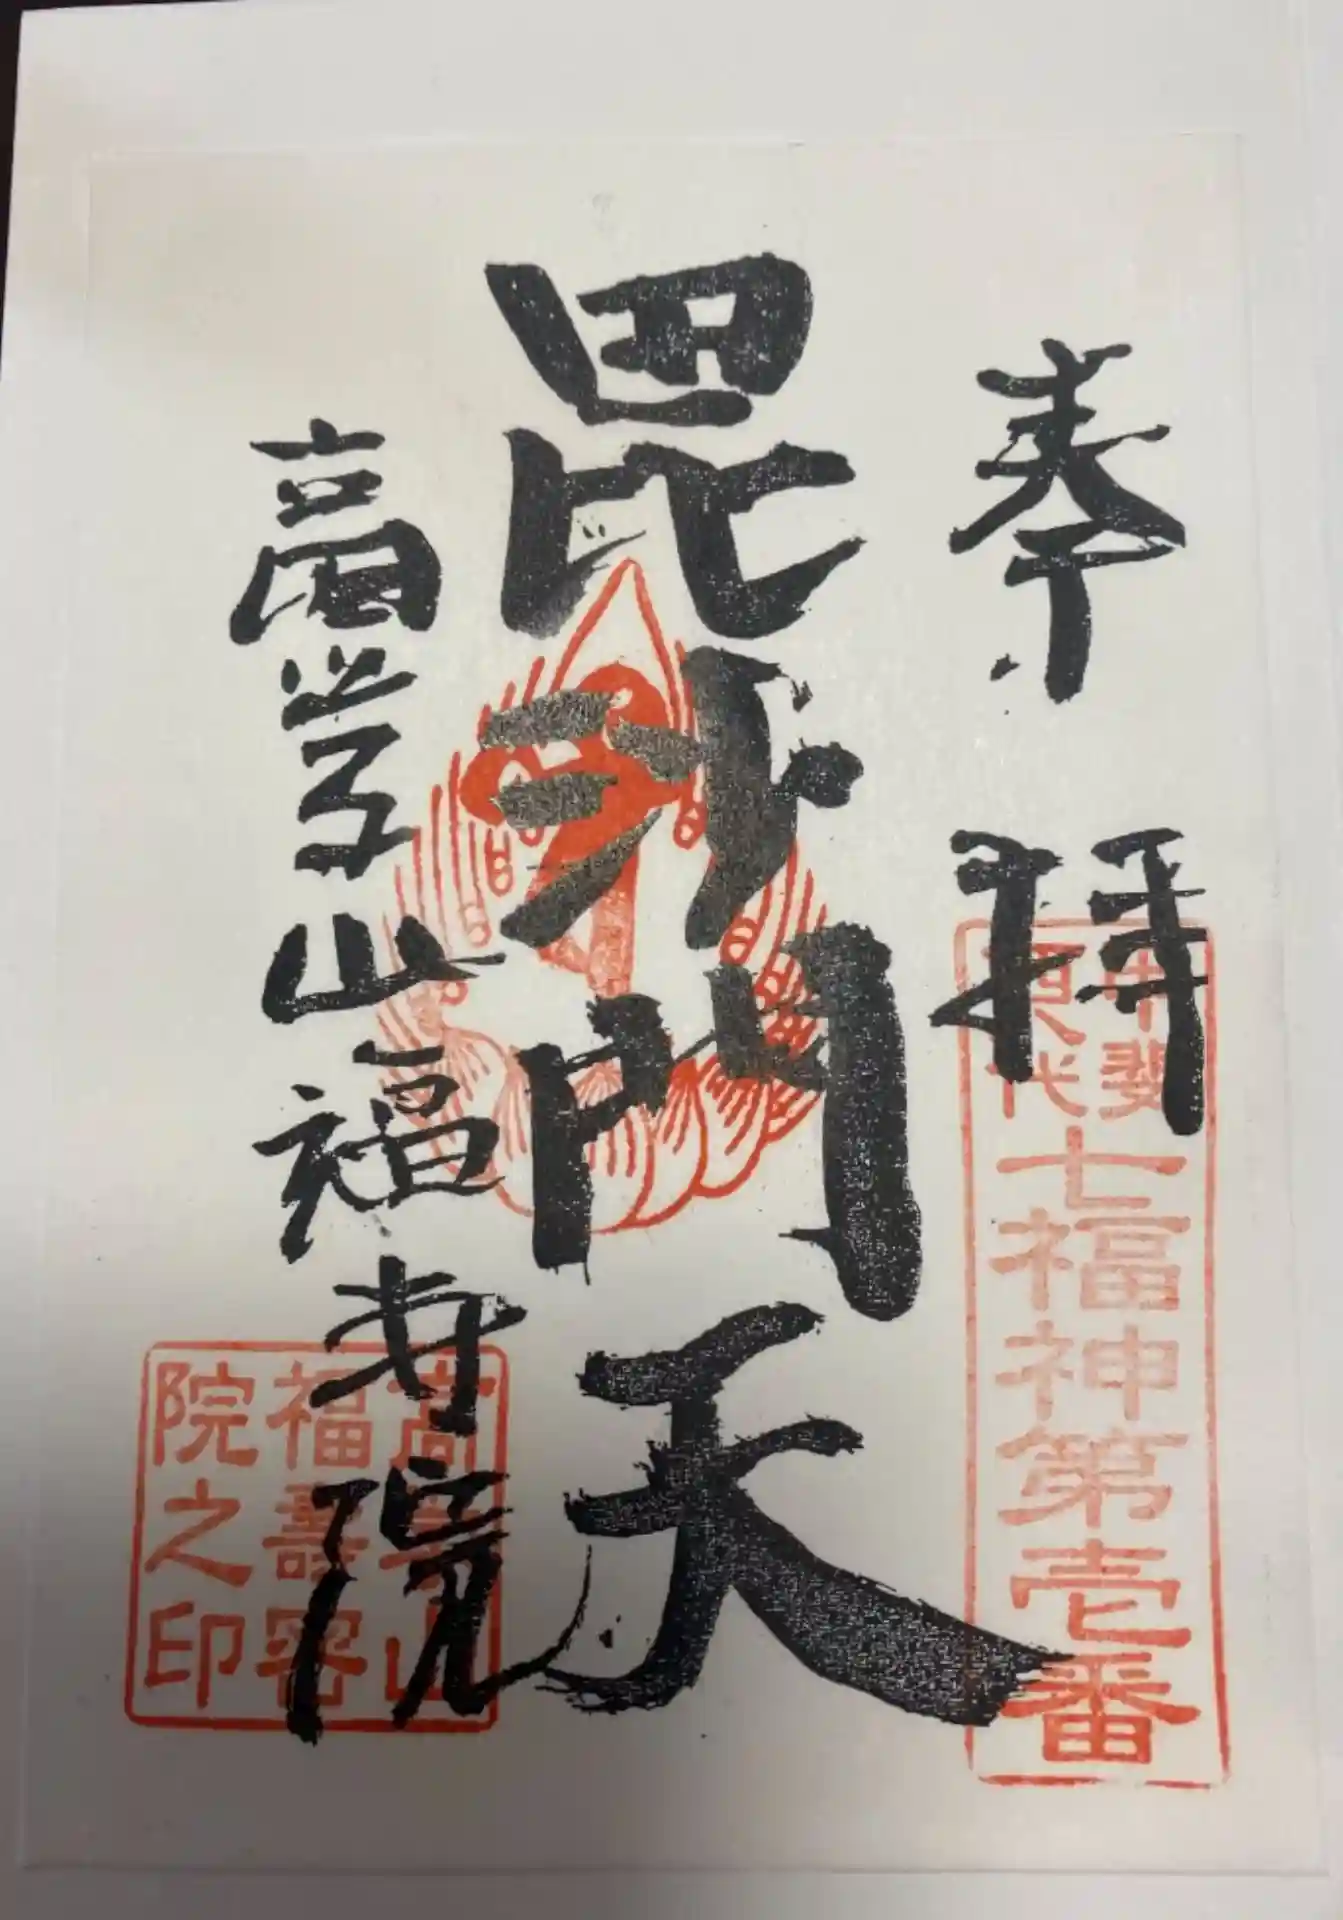 奉拝
甲斐
西八代
七福神第壱番
毘沙門天
高萼山福寿院
高萼山
福壽密
院之印